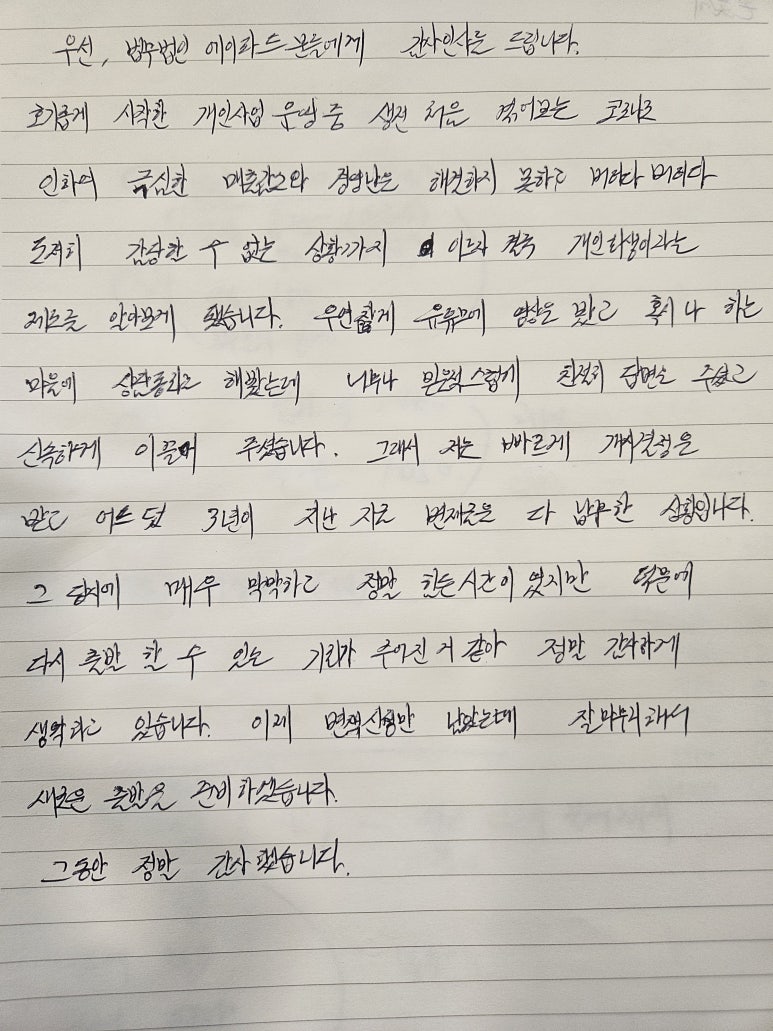 우선, 법무법인 에이파트 분들에게 감사인사를 드립니다.
호기롭게 시작한 개인사업 운영 중 생전 처음 겪어보는 코로나로
인하여 급심한 매출감소와 경영난을 해결하지 못하고 버티다 버티다
도저히 감당할 수 없는 상황까지 이르자 결국 개인회생이라는
제도를 알아보게 됐습니다. 우연찮게 유튜브에 영상을 봤고 혹시나 하는
마음에 상담통화를 해봤는데 너무나 믿음직스럽게 친절히 답변을 주셨고
신속하게 이끌어 주셨습니다. 그래서 저는 빠르게 개시결정을
받고 어느덧 3년이 지난 지금 변제금을 다 납부한 상황입니다.
그 당시에 매우 막막하고 정말 힘든 시간이었지만 덕분에
다시 출발 할 수 있는 기회가 주어진 거 같아 정말 감사하게
생각하고 있습니다. 이제 면책신청만 남았는데 잘 마무리해서
새로운 출발을 준비하겠습니다.
그동안 정말 감사했습니다.